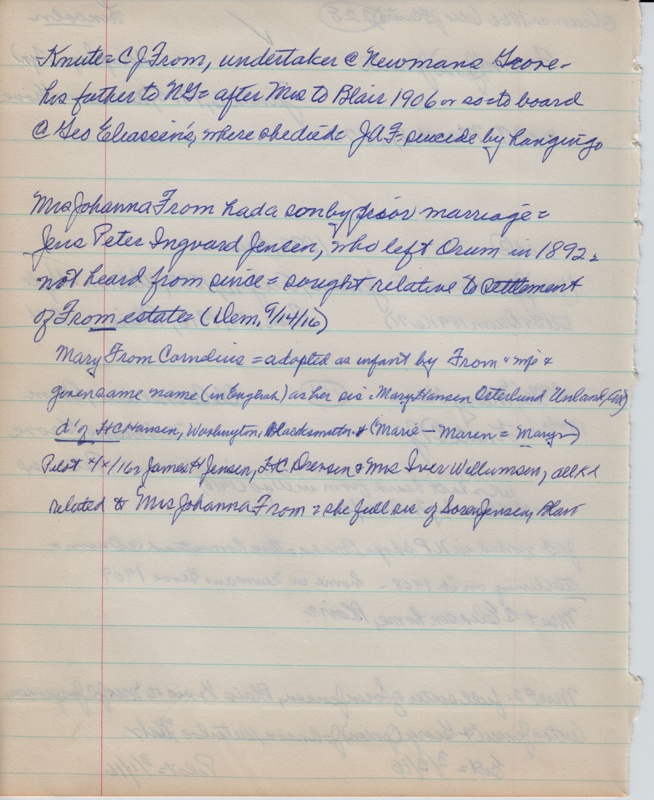 -Knute = C J From, undertaker @ Newmans Grove -
his father to NG = after Mrs to Blair 1906 or so to board
@ Geo Eliassen's, where she died = JAF = suicide by hanging
Mrs Johanna From had a son by prior marriage =
Jens Peter Ingvard Jensen, who left Orum in 1892 =
not heard from since = sought relative to settlement
of From estate = (Dem, 9/14/16)
Mary From Cornelius = adopted as infant by From +
given same name (in English) as her sis. Mary Hansen Osterlund Unland,
d' of H C Hansen, Washington, Blacksmith + (Marie — Maren = Mary)
Pilot James H Jensen, H C Drensen + Mrs Iver Wellumsen, all
related to Mrs Johanna From = she full sis of Soren Jensen, Blair